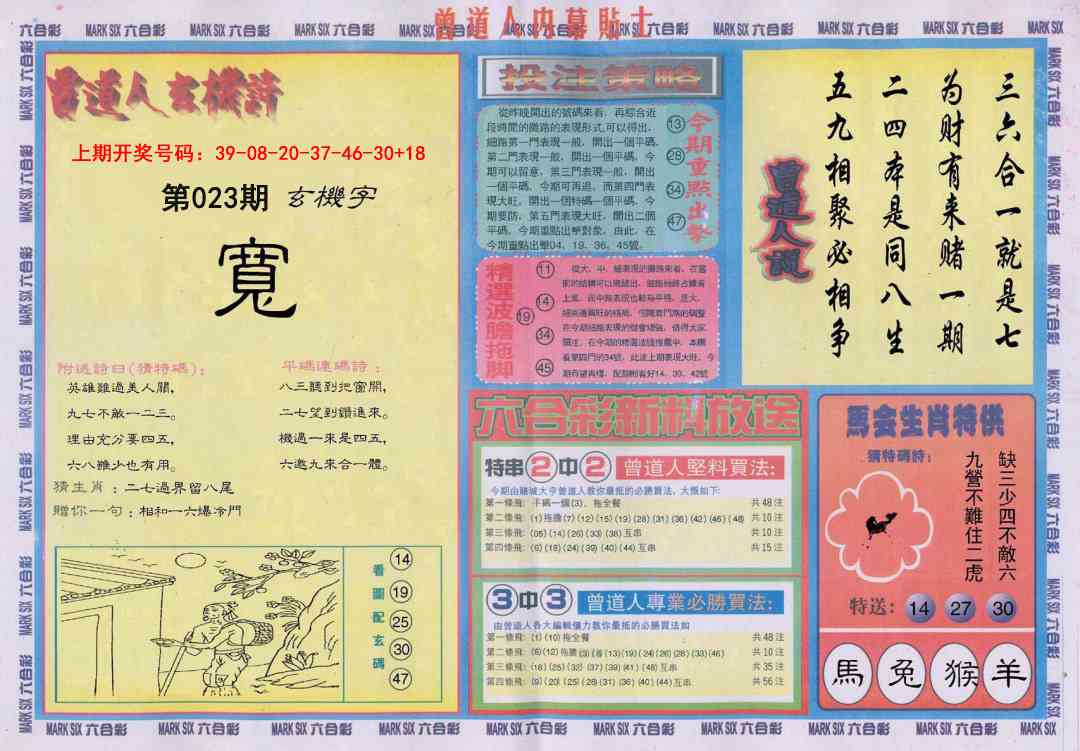 曾道人内幕貼士
MARK SIX 六合彩
曾道人玄機詩
上期开奖号码：39-08-20-37-46-30+18
第023期 玄機字
寬
附送詩曰(猜特碼)：
英雄難過美人關，
九七不敵一二三。
理由充分要四五，
六八雖少也有用。
平碼連碼詩：
八三聽到把窗開，
二七望到鑽進來。
機遇一來是四五，
六邀九來合一體。
猜生肖：二七過界留八尾
贈你一句：相和一六爆冷門
看圖配玄碼
14
19
25
30
47
投注策略
從昨晚開出的號碼來看，再綜合近
段時間的攤路的表現形式，可以得出，
細路第一門表現一般，開出一個平碼，
第二門表現一般，開出一個平碼，今
期可以留意，第三門表現一般，開出
一個平碼，今期可再追，而第四門表
現大旺，開出一個特碼一個平碼，今
期要防，第五門表現大旺，開出二個
平碼，今期重點出擊對象，由此，在
今期重點出擊04、19、36、45號。
13
28
34
47
今期重點出擊
精選波膽拖脚
11
14
19
34
45
六合彩新料放送
特串2中2 曾道人堅料買法：
今期由賭城大亨曾道人教你最抵的必勝買法，大概如下：
第一條飛：平碼一個(3)，拖全餐 共48注
第二條飛：(1)拖膽(7)(12)(15)(19)(28)(31)(36)(42)(45)(48) 共10注
第三條飛：(05)(14)(26)(33)(38)互串 共10注
第四條飛：(6)(18)(24)(39)(40)(44)互串 共15注
3中3 曾道人專業必勝買法：
由曾道人各大編輯傾力教你最抵的必勝買法如
第一條飛：(1)(10)拖全餐 共48注
第二條飛：(6)(12)拖膽(3)(8)(13)(19)(24)(26)(28)(33)(46) 共10注
第三條飛：(18)(25)(32)(37)(39)(41)(48)互串 共35注
第四條飛：(9)(20)(25)(28)(31)(36)(40)(44)互串 共56注
曾道人説
三六合一就是七
为财有来赌一期
二四本是同八生
五九相聚必相争
馬会生肖特供
猜特碼詩：
缺三少四不敵六
九營不難住二虎
特送：14 27 30
馬 兔 猴 羊